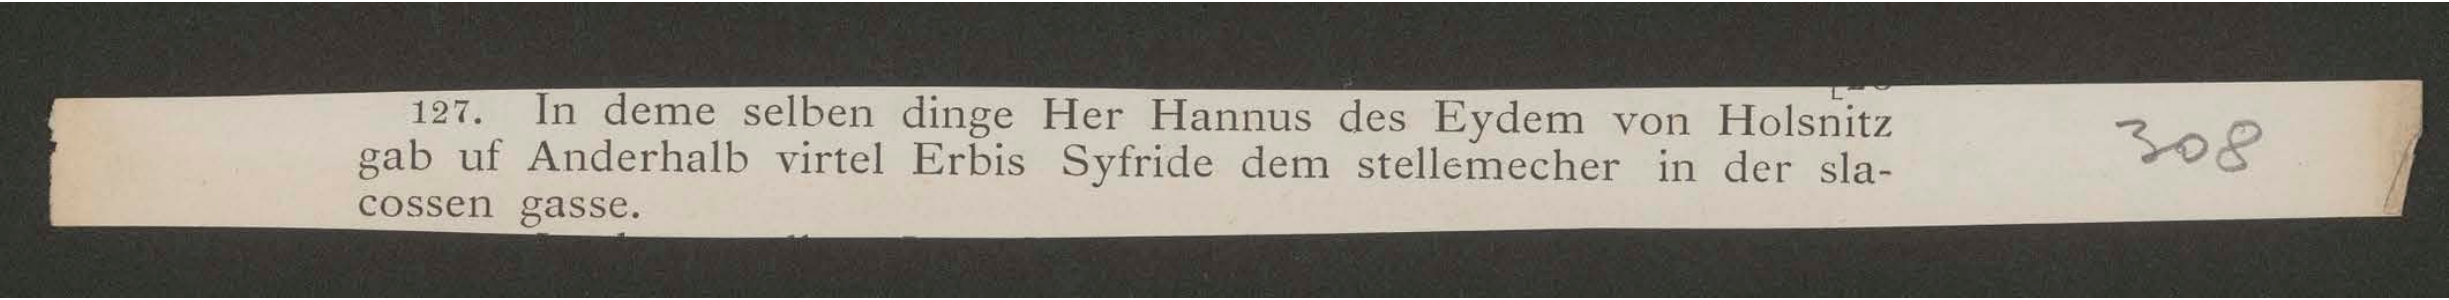 127. In deme selben dinge Her Hannus des Eydem von Holsnitz
gab uf Anderhalb virtel Erbis Syfride dem stellemecher in der sla-
cossen gasse.
308